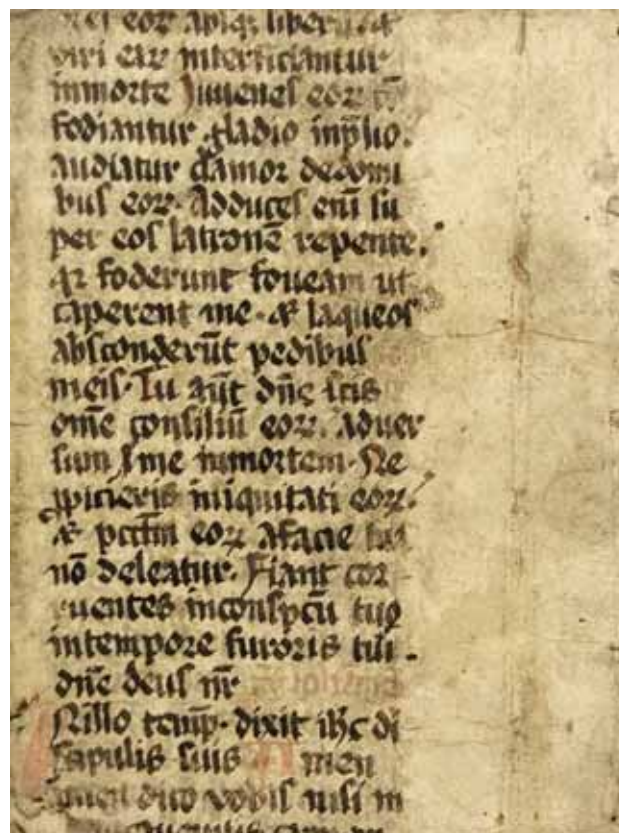 eoꝝ absq; liberis ⁊
viri eaꝝ interficiantur
inmorte Juuenes eoꝝ 
fodiantur gladio inp̄lio.
audiatur clamor dedomi
bus eoꝝ. Adduces eni̅ su
per eos latrone̅ repente.
qꝛ foderunt foueam ut
caperent me. ⁊ laqueos
absconderu̅t pedibus
meis. Tu au̅t dn̅e scis
om̅e consiliu̅ eoꝝ. aduer
sum me inmortem. Ne
ꝓpicieris iniquitati eoꝝ.
⁊ pcc̅m eoꝝ afacie tua
no̅ deleatur. Fiant cor
ruentes inconspc̅u tuo
intempore furoris tui.
dn̅e deus nr̅
Nillo temp̅. dixit ih̅c di
scipulis suis Amen
amen dico vobis nisi